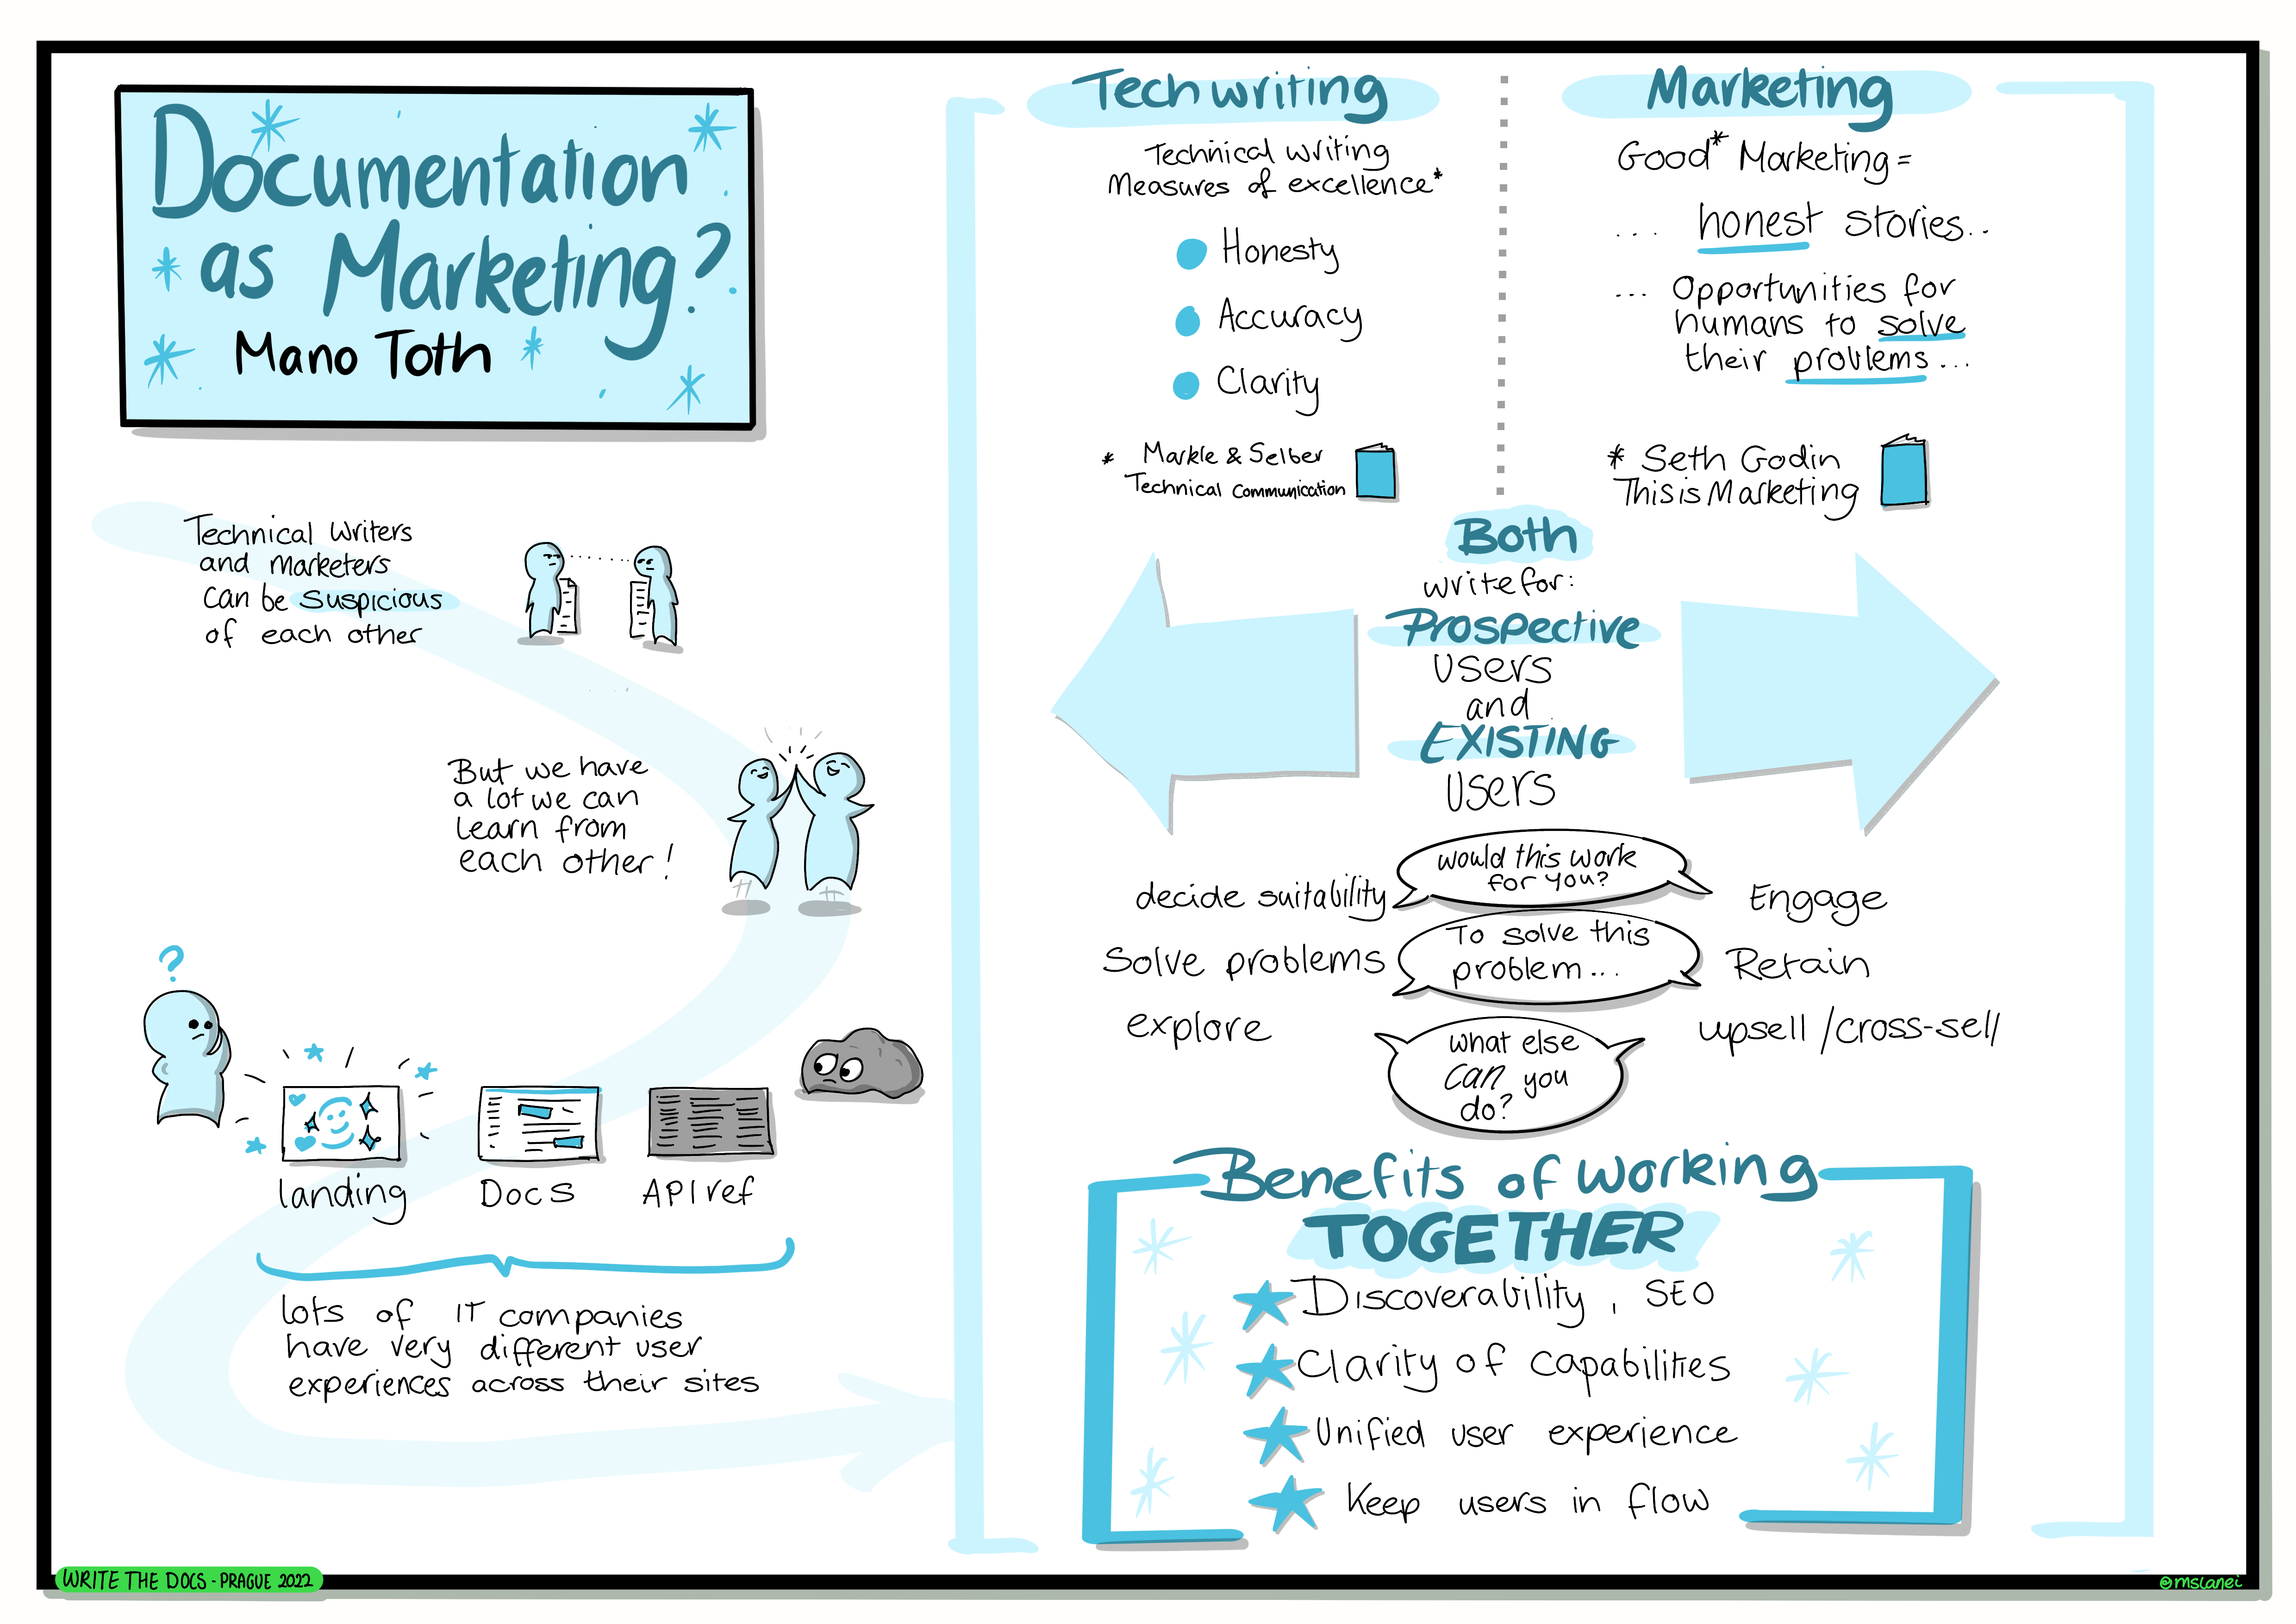 Documentation
as Marketing?
Mano Toth
Technical Writers
and marketers
can be suspicious
of each other
But we have
a lot we can
learn from
each other!
?
landing
Docs
API ref
lots of IT companies
have very different user
experiences across their sites
Tech writing
Technical writing
Measures of excellence*
Honesty
Accuracy
Clarity
* Markle & Selber
Technical Communication
Marketing
Good* Marketing =
... honest stories..
... Opportunities for
humans to solve
their problems...
* Seth Godin
This is Marketing
Both
write for:
Prospective
users
and
EXISTING
users
decide suitability
would this work
for you?
Engage
Solve problems
To solve this
problem...
Retain
explore
what else
can you
do?
upsell/cross-sell
Benefits of working
TOGETHER
Discoverability, SEO
Clarity of capabilities
Unified user experience
Keep users in flow
WRITE THE DOCS - PRAGUE 2022
@mslanei